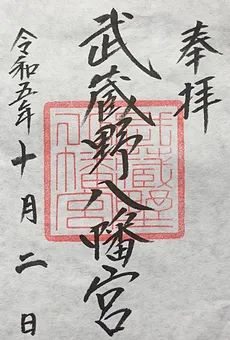 奉拝
武蔵野八幡宮
令和五年十月二日
武蔵野八幡宮